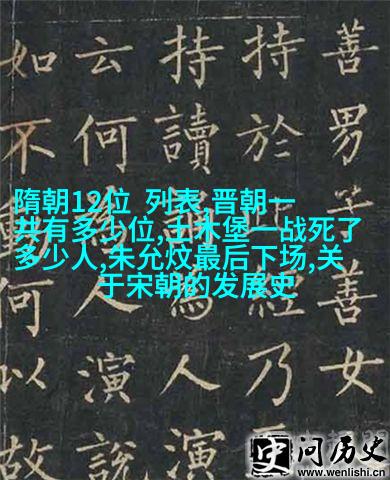 隋朝12位 列表,晋朝一
共有多少位,土木堡一战死了
多少人,朱允炆最后下场,关
于宋朝的发展史
善男子善女
持於乃
持讀誦為人演
云何為人演說
如不動何以故
史问历史
www.wenlishi.cn